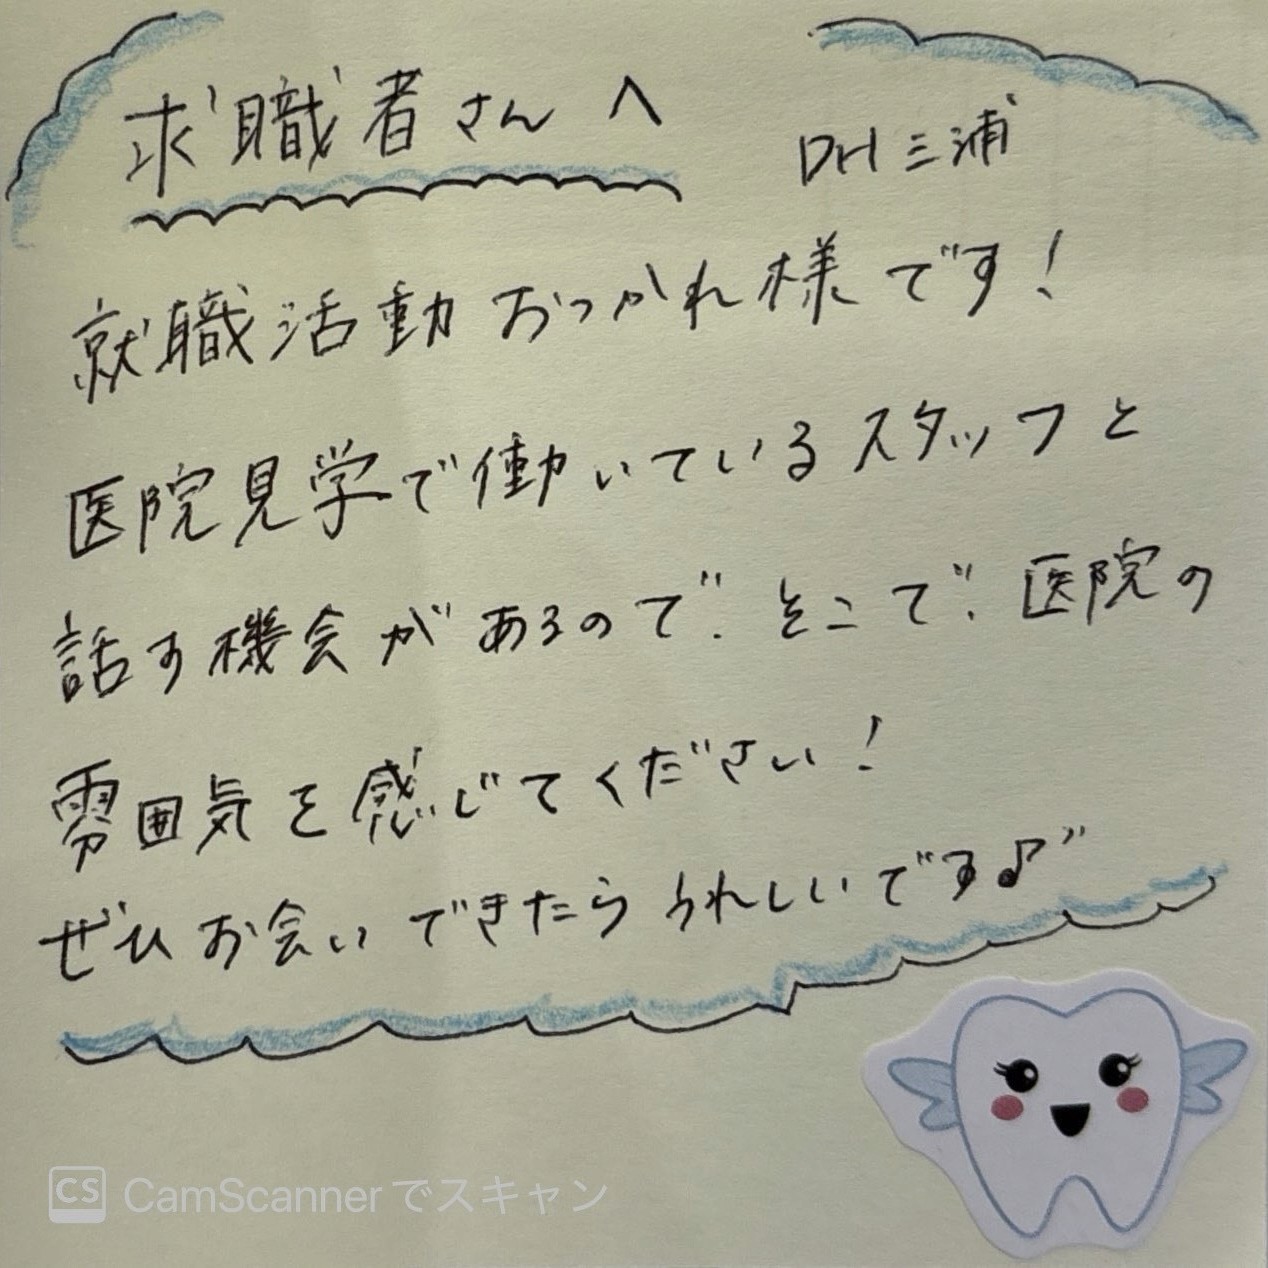 求職者さんへ
DH 三浦
就職活動おつかれ様です!
医院見学で働いているスタッフと
話す機会があるので、そこで、医院の
雰囲気を感じてください!
ぜひお会いできたらうれしいです♪"
CS CamScannerでスキャン